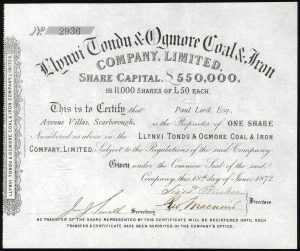 No 2936
Llynvi Tondu & Ogmore Coal & Iron
COMPANY, LIMITED.
SHARE CAPITAL, £550,000,
IN 11,000 SHARES OF £50 EACH.
This is to Certify that Paul Lord, Esq.,
Avenue Villas, Scarborough, is the Proprietor of ONE SHARE
Numbered as above in the LLYNVI TONDU & OGMORE COAL & IRON
COMPANY, LIMITED. Subject to the Regulations of the said Company.
Given under the Common Seal of the said
Company, this 18th day of June, 1872.
Directors
Secretary
NO TRANSFER OF THE SHARE REPRESENTED BY THIS CERTIFICATE WILL BE REGISTERED UNTIL SUCH
TRANSFER & CERTIFICATE HAVE BEEN DEPOSITED IN THE COMPANY'S OFFICE.
LLYNVI TONDU & OGMORE COAL & IRON COMPANY LIMITED